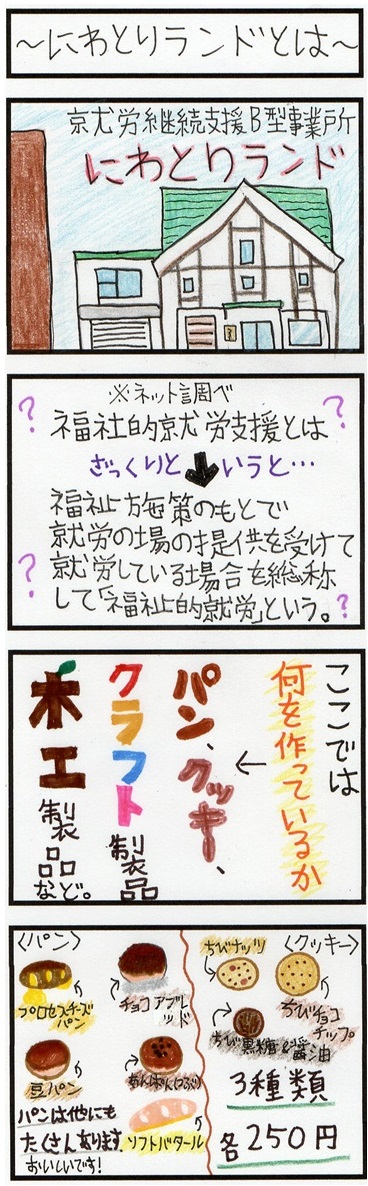 ～にわとりランドとは～
就労継続支援B型事業所
にわとりランド
※ネット調べ
福祉的就労支援とは
ざっくりと いうと…
福祉施策のもとで
就労の場の提供を受けて
就労している場合を総称
して「福祉的就労」という。
? ? ? ?
ここでは
何を作っているか
←
パン、クッキー、
クラフト製品
木工製品など。
〈パン〉
プロセスチーズ
パン
チョコアブレ
ッド
豆パン
あんぱん(つぶ)
ソフトバタール
パンは他にも
たくさんあります
おいしいです!
〈クッキー〉
ちびナッツ
ちびチョコ
チップ
ちび黒糖&醤油
3種類
各250円